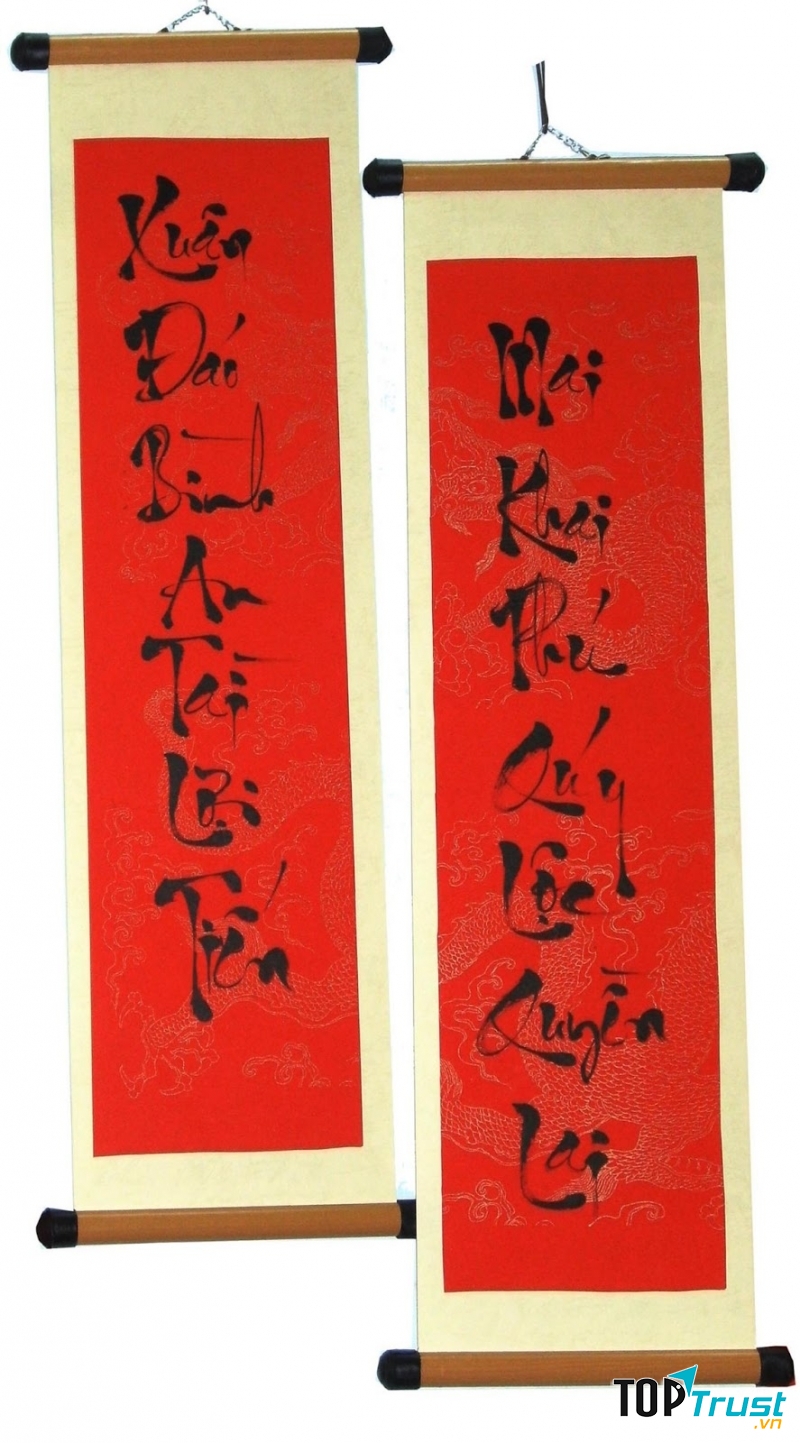 Xuân
Đáo
Bình
An
Tài
Lợi
Tiến
Mai
Khai
Phú
Quý
Lộc
Quyền
Lai
TOPTrust
.vn